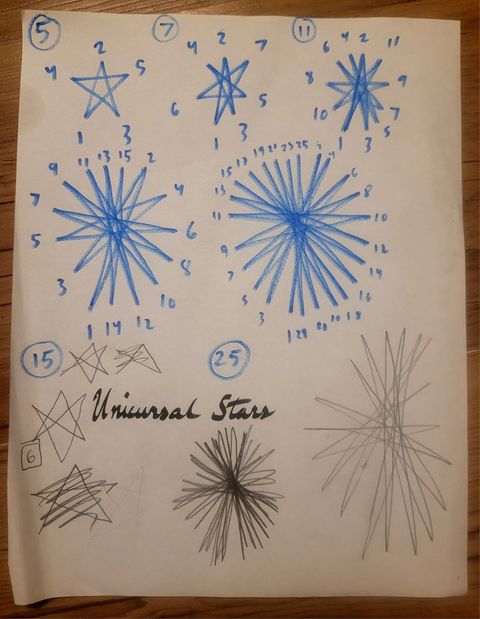 5 7 11
2
4 5
1 3
4 2 7
6 5
1 3
6 4 2 11
8 9
10 7
1 3 5
9 11 13 15 2
7 4
5 6
3 8
10
1 14 12
15 17 19 21 23 25 2 4
13 6
11 8
9 10
7 12
5 14
3 16
1 24 20 18
15 25
Unicursal Stars
6